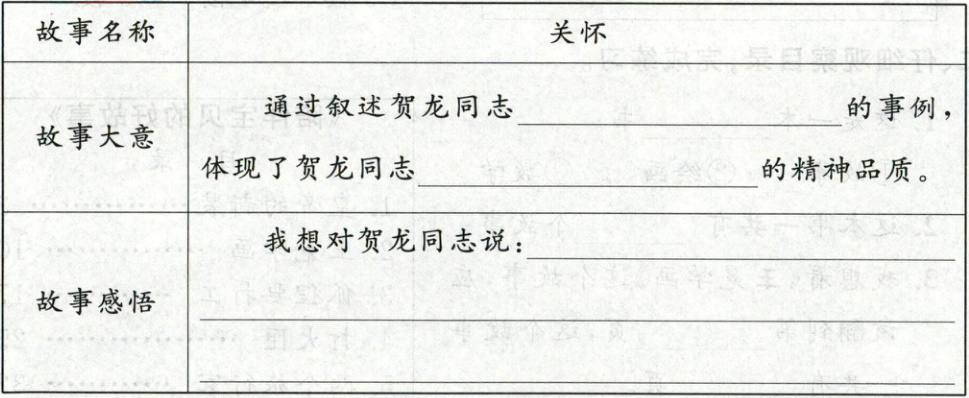 故事名称 关怀
故事大意
通过叙述贺龙同志____的事例，
体现了贺龙同志____的精神品质。
故事感悟
我想对贺龙同志说：____